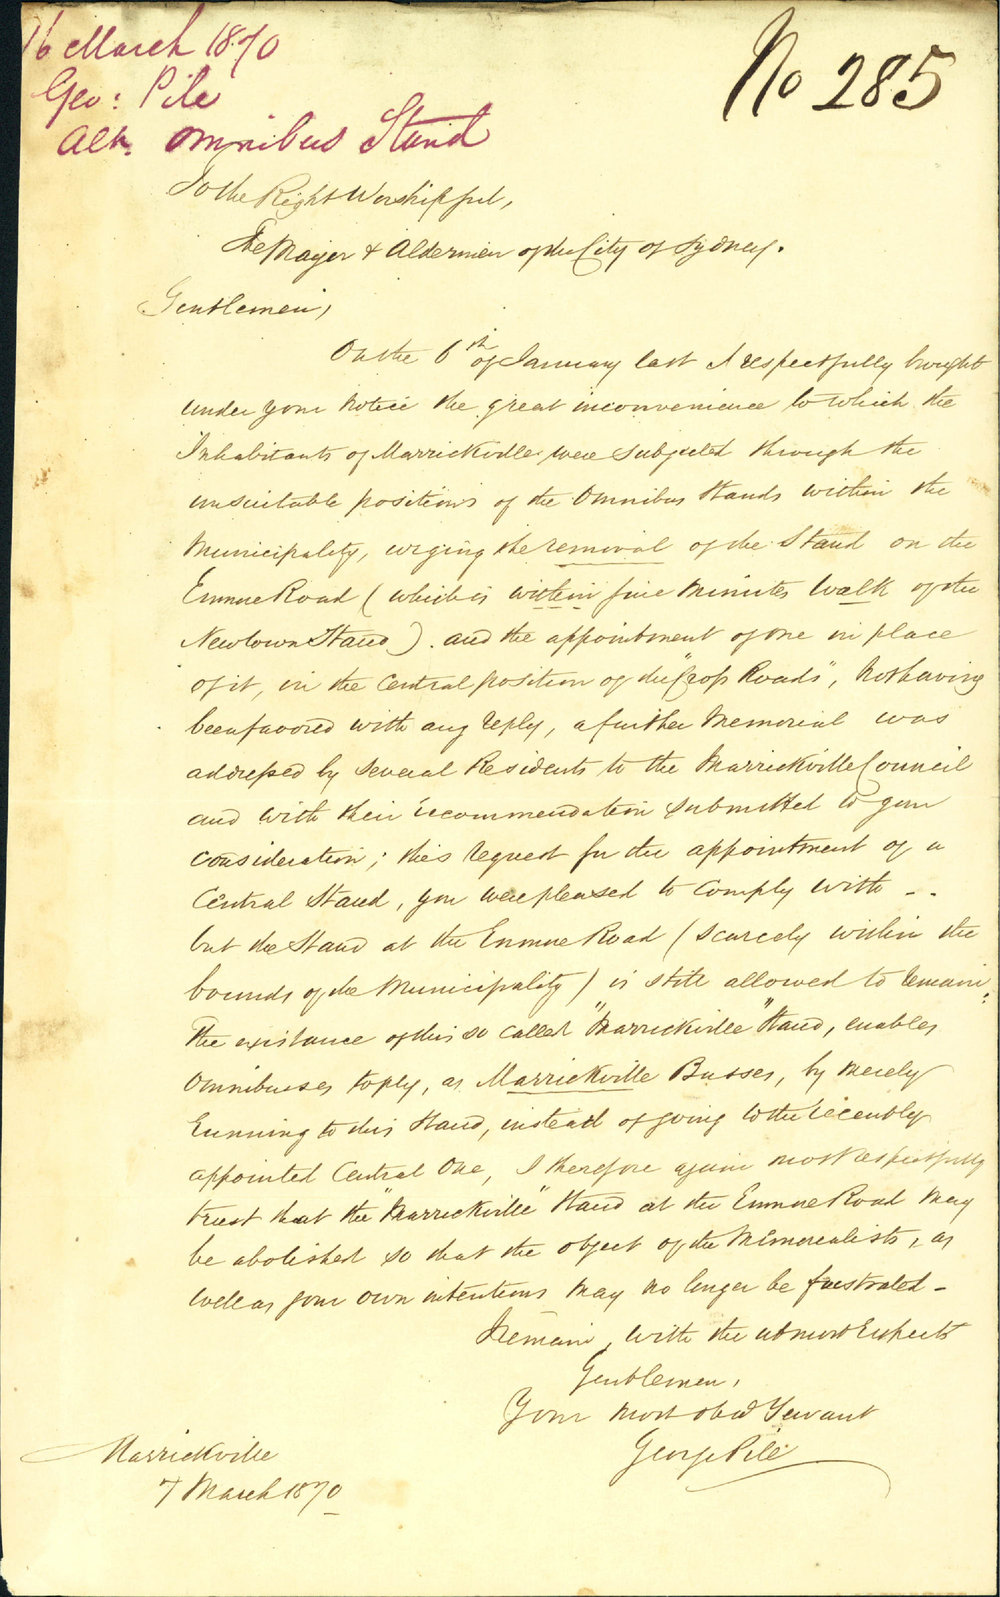 16 March 1870
Geo: Pile
No 285
Omnibus Stand
To the Right Worshipful,
The Mayor & Aldermen of the City of Sydney.
Gentlemen,
On the 6th of January last I respectfully brought
under your notice the great inconvenience to which the
Inhabitants of Marrickville were subjected through the
unsuitable positions of the Omnibus Stands within the
Municipality, urging the removal of the Stand on the
Enmore Road (which is within five minutes walk of the
Newtown Stand). and the appointment of one in place
of it, in the Central position of the "Cross Roads", not having
been favored with any reply, a further Memorial was
addressed by several Residents to the Marrickville Council
and with their recommendation submitted to your
consideration; this request for the appointment of a
Central Stand, you were pleased to comply with - -
but the Stand at the Enmore Road (scarcely within the
bounds of the Municipality) is still allowed to remain.
The existance of this so called "Marrickville" Stand, enables
Omnibuses to ply, as Marrickville Busses, by merely
running to this Stand, instead of going to the recently
appointed Central One, I therefore again most respectfully
trust that the "Marrickville" Stand at the Enmore Road may
be abolished so that the object of the Memorealists, as
well as your own intentions may no longer be frustrated -
I remain, with the utmost respects
Gentlemen,
Your most obed Servant
George Pile
Marrickville
7 March 1870